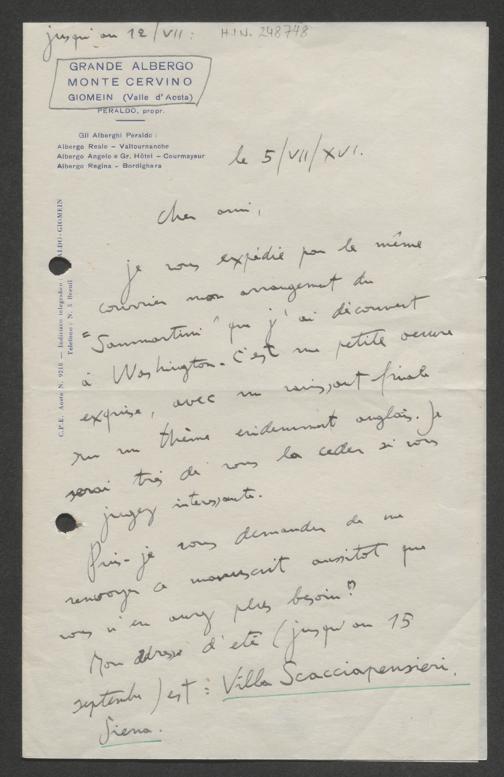 jusqu'au 12/VII : H.I.N. 248748
GRANDE ALBERGO
MONTE CERVINO
GIOMEIN (Valle d'Aosta)
PERALDO, propr.
Gli Alberghi Peraldo:
Albergo Reale - Valtournanche
Albergo Angelo e Gr. Hôtel - Courmayeur
Albergo Regina - Bordighera
C.P.E. Aosta N. 9218 — Indirizzo telegrafico: ALDO-GIOMEIN
Telefono: N. 5 Breuil
le 5/VII/XVI.
Cher ami,
je vous expédie par le même
courrier mon arrangement du
"Sammartini" que j'ai découvert
à Washington. C'est une petite oeuvre
exquise, avec un ravissant finale
sur un thème evidemment anglais. Je
serai très de vous la ceder si vous
jugez interessante.
Puis-je vous demander de me
renvoyer ce manuscrit aussitot que
vous n'en aurez plus besoin?
Mon adresse d'eté (jusqu'au 15
septembre) est : Villa Scacciapensieri.
Siena.